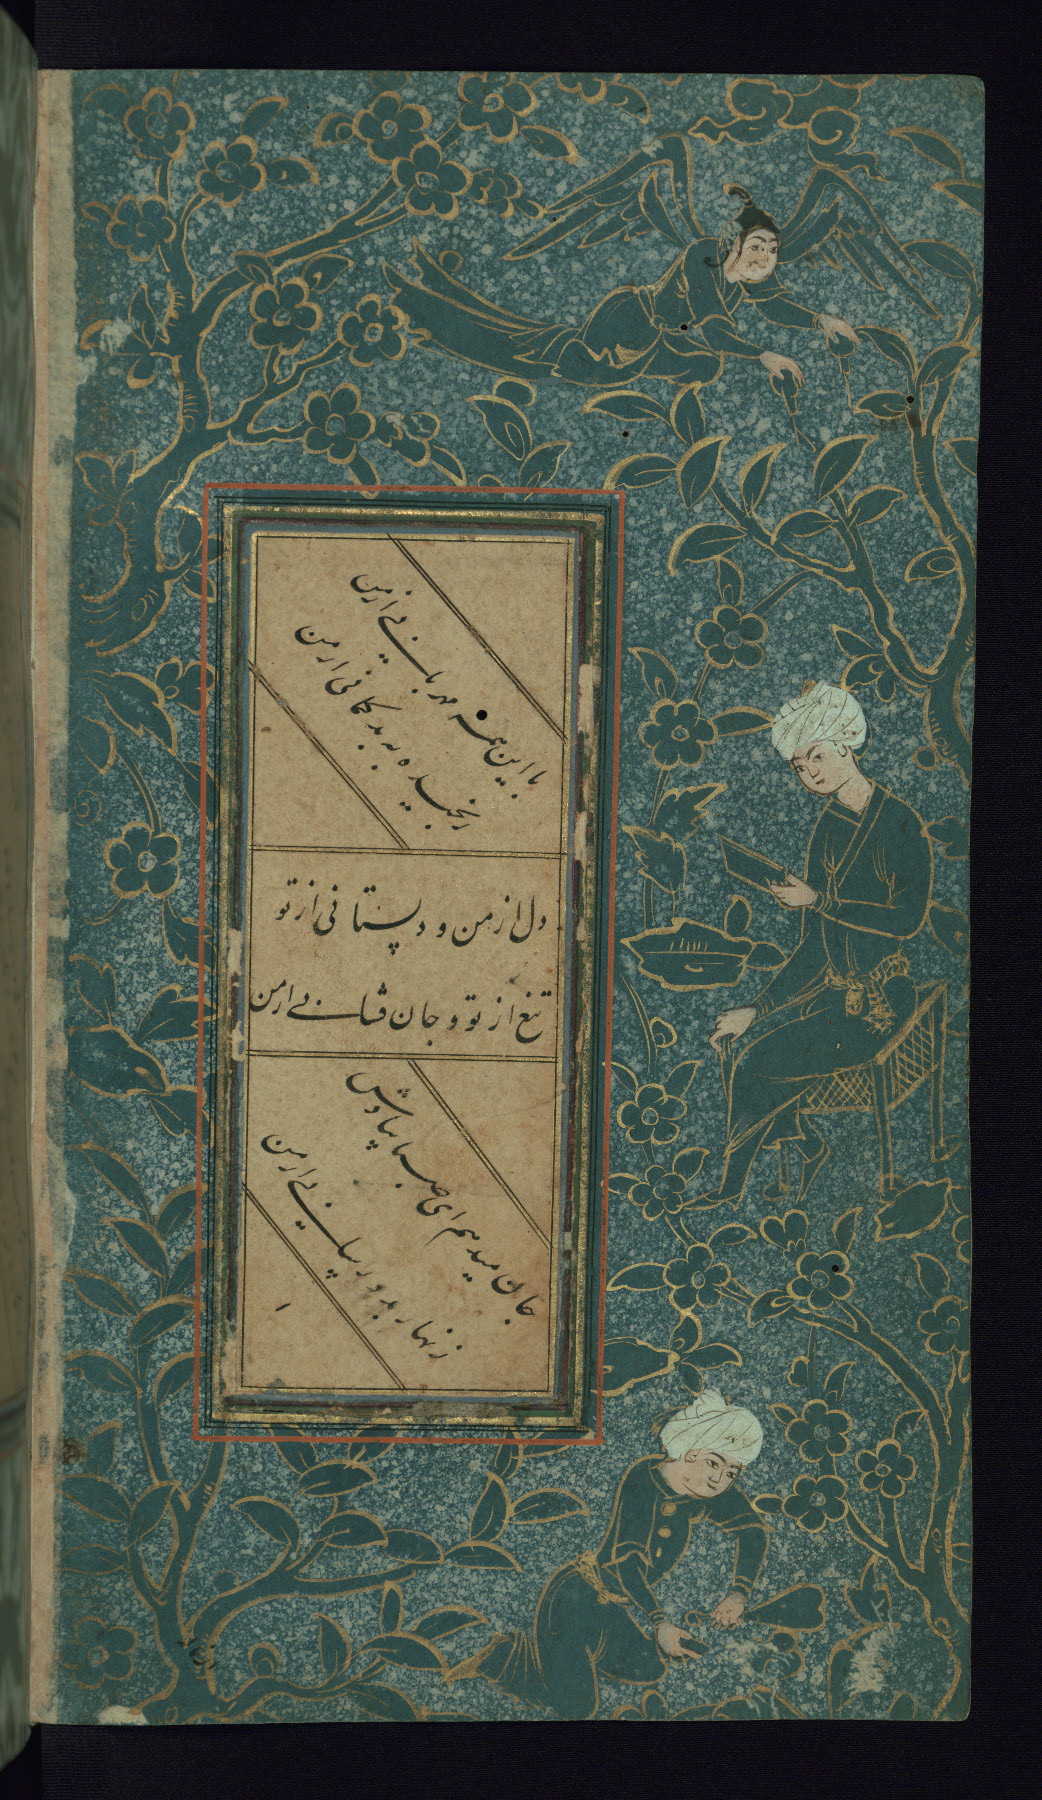 با این همه مهربانی از من
رنجیده به بدگمانی از من
دل از من و دلستانی از تو
تیغ از تو و جان فشانی از من
جان میدهم ای صبا بپاداش
زنهار بدو رسانی از من